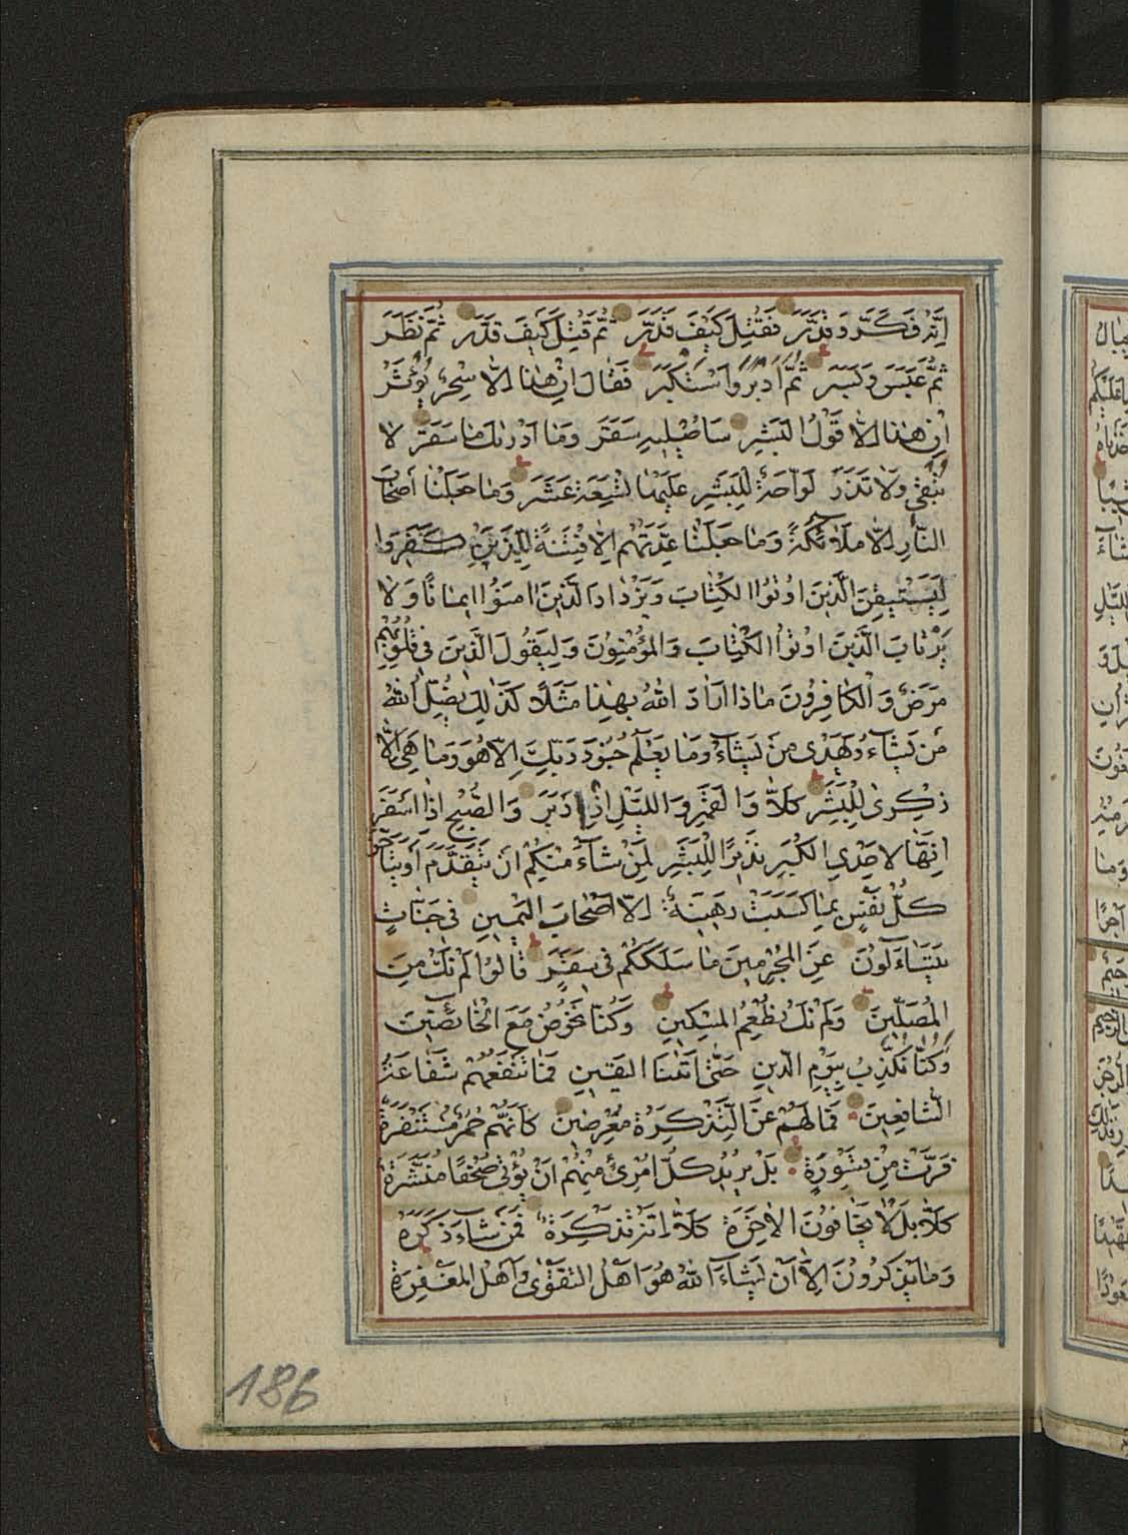 اِنَّهُ فَكَّرَ وَقَدَّرَ فَقُتِلَ كَيْفَ قَدَّرَ ثُمَّ قُتِلَ كَيْفَ قَدَّرَ ثُمَّ نَظَرَ
ثُمَّ عَبَسَ وَبَسَرَ ثُمَّ اَدْبَرَ وَاسْتَكْبَرَ فَقَالَ اِنْ هٰذَا اِلَّا سِحْرٌ يُؤْثَرُ
اِنْ هٰذَا اِلَّا قَوْلُ الْبَشَرِ سَاُصْلِيهِ سَقَرَ وَمَا اَدْرٰىكَ مَا سَقَرُ لَا
تُبْقِى وَلَا تَذَرُ لَوَّاحَةٌ لِلْبَشَرِ عَلَيْهَا تِسْعَةَ عَشَرَ وَمَا جَعَلْنَا اَصْحَابَ
النَّارِ اِلَّا مَلَآئِكَةً وَمَا جَعَلْنَا عِدَّتَهُمْ اِلَّا فِتْنَةً لِلَّذِينَ كَفَرُوا
لِيَسْتَيْقِنَ الَّذِينَ اُوتُوا الْكِتَابَ وَيَزْدَادَ الَّذِينَ اٰمَنُوا اِيمَانًا وَلَا
يَرْتَابَ الَّذِينَ اُوتُوا الْكِتَابَ وَالْمُؤْمِنُونَ وَلِيَقُولَ الَّذِينَ فِى قُلُوبِهِمْ
مَرَضٌ وَالْكَافِرُونَ مَاذَا اَرَادَ اللهُ بِهٰذَا مَثَلًا كَذٰلِكَ يُضِلُّ اللهُ
مَنْ يَشَآءُ وَيَهْدِى مَنْ يَشَآءُ وَمَا يَعْلَمُ جُنُودَ رَبِّكَ اِلَّا هُوَ وَمَا هِىَ اِلَّا
ذِكْرٰى لِلْبَشَرِ كَلَّا وَالْقَمَرِ وَاللَّيْلِ اِذْ اَدْبَرَ وَالصُّبْحِ اِذَا اَسْفَرَ
اِنَّهَا لَاِحْدَى الْكُبَرِ نَذِيرًا لِلْبَشَرِ لِمَنْ شَآءَ مِنْكُمْ اَنْ يَتَقَدَّمَ اَوْ يَتَاَخَّرَ
كُلُّ نَفْسٍ بِمَا كَسَبَتْ رَهِينَةٌ اِلَّا اَصْحَابَ الْيَمِينِ فِى جَنَّاتٍ
يَتَسَآءَلُونَ عَنِ الْمُجْرِمِينَ مَا سَلَكَكُمْ فِى سَقَرَ قَالُوا لَمْ نَكُ مِنَ
الْمُصَلِّينَ وَلَمْ نَكُ نُطْعِمُ الْمِسْكِينَ وَكُنَّا نَخُوضُ مَعَ الْخَآئِضِينَ
وَكُنَّا نُكَذِّبُ بِيَوْمِ الدِّينِ حَتّٰى اَتٰينَا الْيَقِينُ فَمَا تَنْفَعُهُمْ شَفَاعَةُ
الشَّافِعِينَ فَمَا لَهُمْ عَنِ التَّذْكِرَةِ مُعْرِضِينَ كَاَنَّهُمْ حُمُرٌ مُسْتَنْفِرَةٌ
فَرَّتْ مِنْ قَسْوَرَةٍ بَلْ يُرِيدُ كُلُّ امْرِئٍ مِنْهُمْ اَنْ يُؤْتٰى صُحُفًا مُنَشَّرَةً
كَلَّا بَلْ لَا يَخَافُونَ الْاٰخِرَةَ كَلَّا اِنَّهُ تَذْكِرَةٌ فَمَنْ شَآءَ ذَكَرَهُ
وَمَا يَذْكُرُونَ اِلَّا اَنْ يَشَآءَ اللهُ هُوَ اَهْلُ التَّقْوٰى وَاَهْلُ الْمَغْفِرَةِ
186